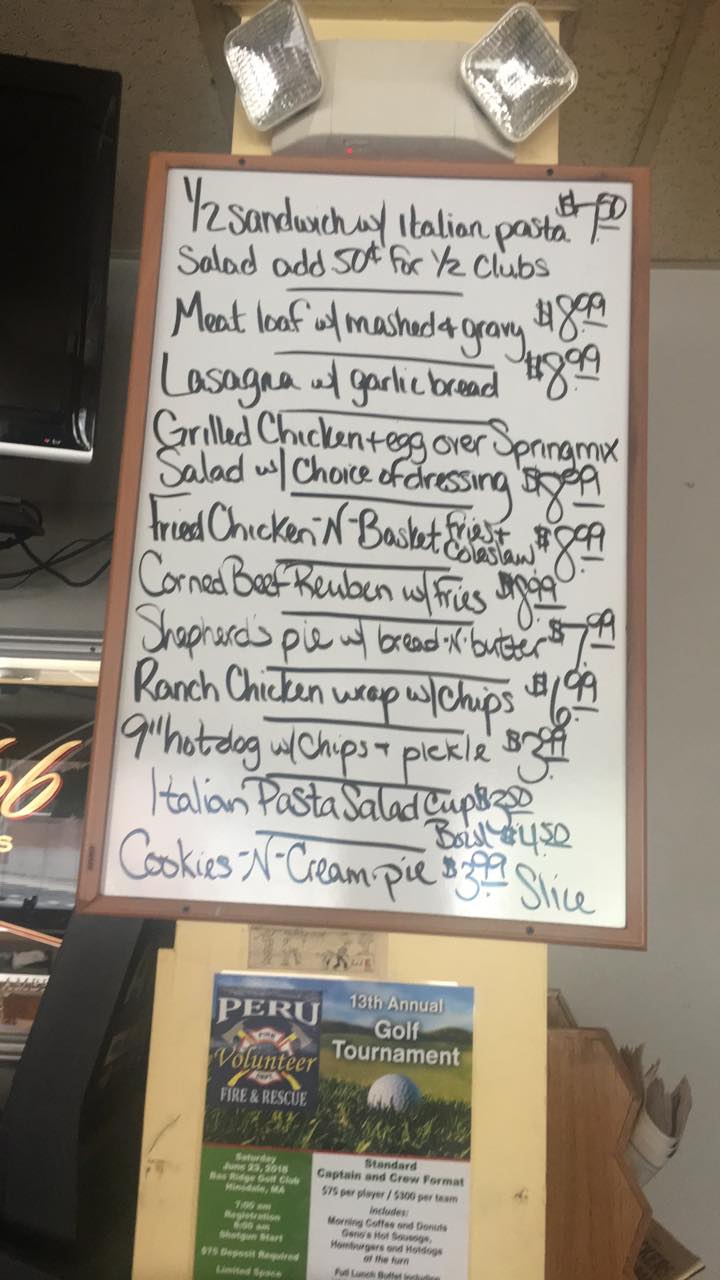 1/2 sandwich w/ Italian pasta $7.50
Salad add 50¢ for 1/2 Clubs
Meat loaf w/ mashed & gravy $8.99
Lasagna w/ garlic bread $8.99
Grilled Chicken + egg over Springmix
Salad w/ Choice of dressing $8.99
Fried Chicken-N-Basket Fries + Coleslaw $8.99
Corned Beef Reuben w/ Fries $8.99
Shepherd's pie w/ bread-N-butter $7.99
Ranch Chicken wrap w/ Chips $6.99
9" hotdog w/ Chips + pickle $3.99
Italian Pasta Salad Cup $3.50
Bowl $4.50
Cookies-N-Cream pie $3.99 Slice
PERU
FIRE
Volunteer
DEPT.
FIRE & RESCUE
13th Annual
Golf
Tournament
Saturday
June 23, 2018
Bas Ridge Golf Club
Hinsdale, MA
7:00 am
Registration
8:00 am
Shotgun Start
$75 Deposit Required
Limited Space
Standard
Captain and Crew Format
$75 per player / $300 per team
Includes:
Morning Coffee and Donuts
Geno's Hot Sausage,
Hamburgers and Hotdogs
at the turn
Full Lunch Buffet including